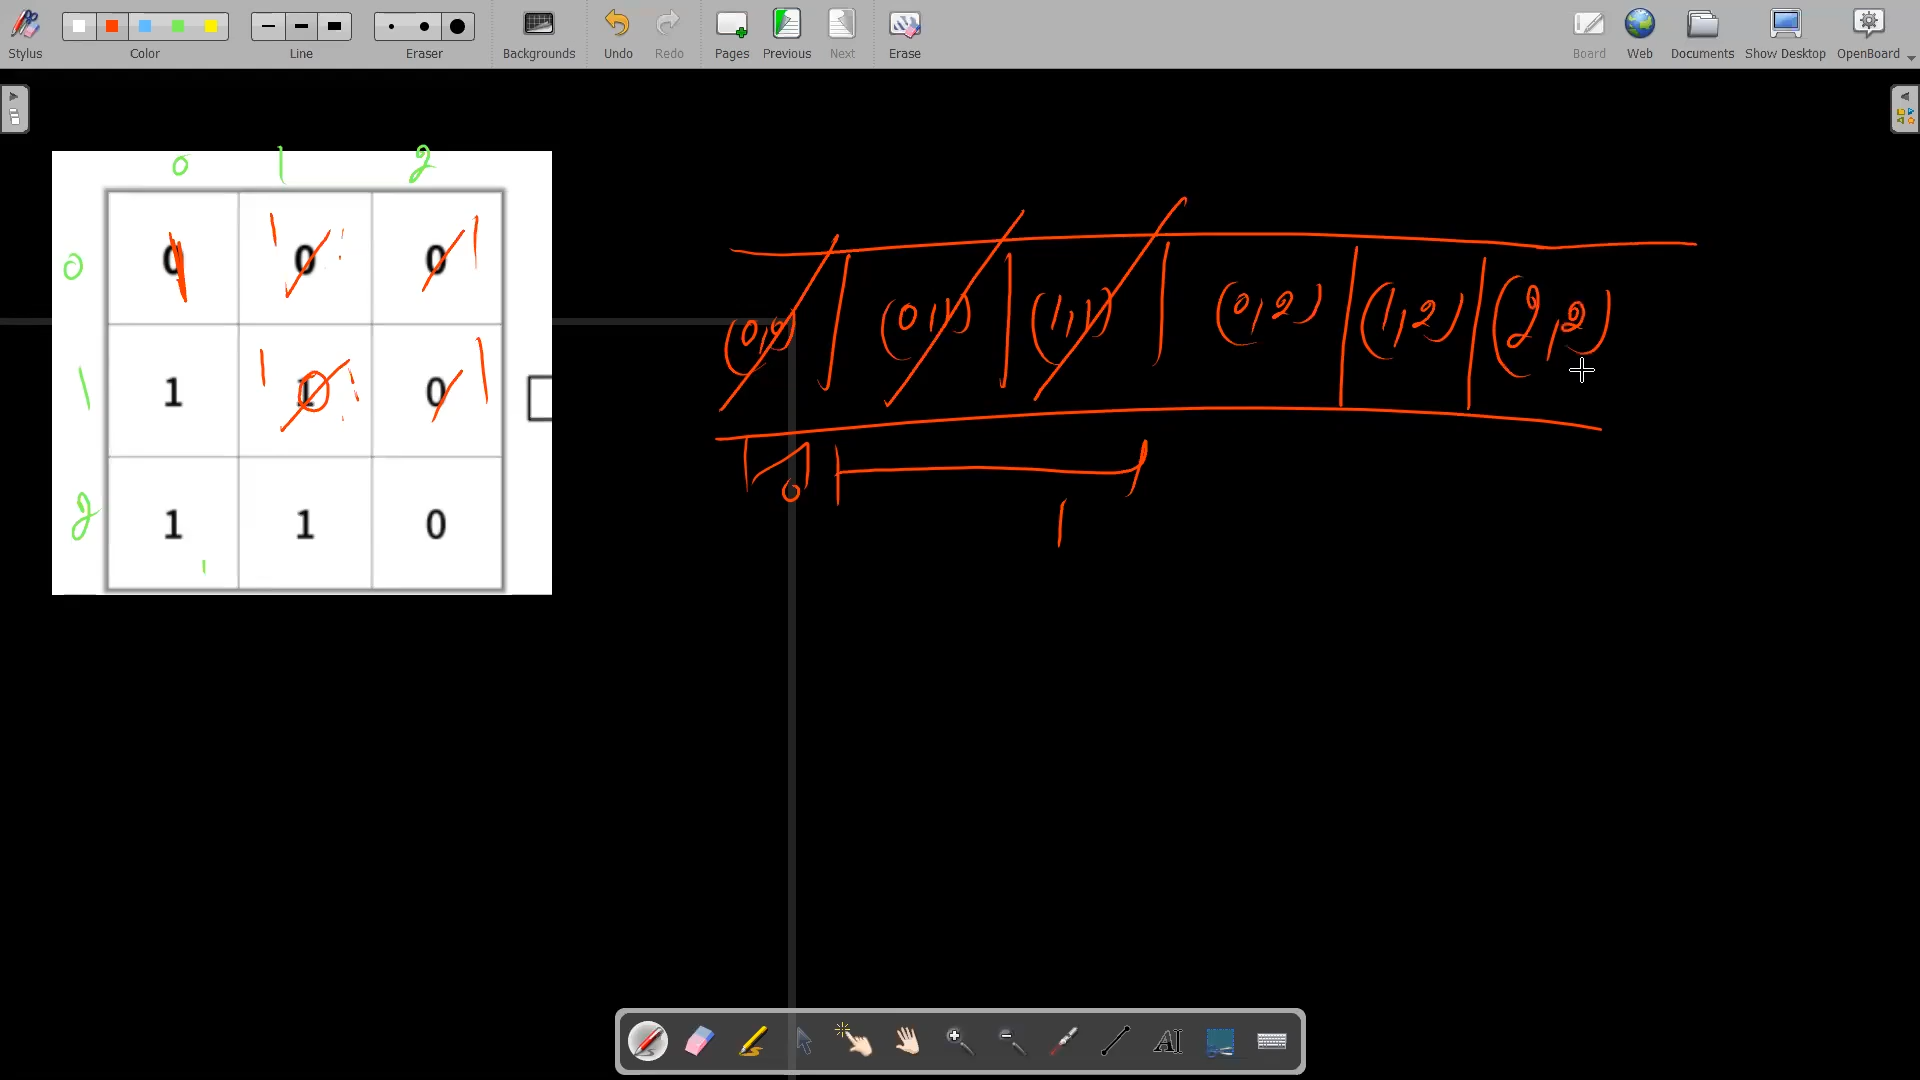 Stylus Color Line Eraser Backgrounds Undo Redo Pages Previous Next Erase Board Web Documents Show Desktop OpenBoard
0 1 2
0 0 1 0 0 1
1 1 1 1 0 0 1
2 1 1 0
(0,0) (0,1) (1,1) (0,2) (1,2) (2,2)
0
1
AI